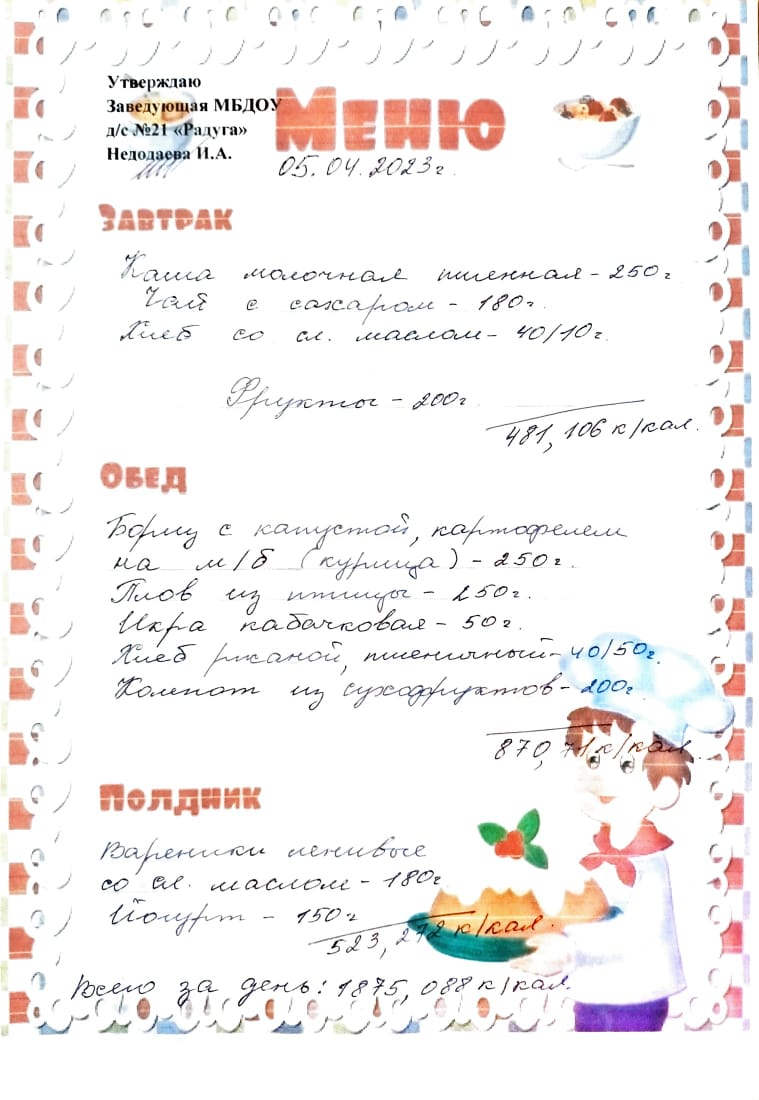 Утверждаю
Заведующая МБДОУ
д/с №21 «Радуга»
Недодаева И.А.
Меню
05.04.2023г.
Завтрак
Каша молочная пшенная - 250г
Чай с сахаром - 180г.
Хлеб со сл. маслом - 40/10г.
Фрукты - 200г
481,106 к/кал.
Обед
Борщ с капустой, картофелем
на м/б (курица) - 250г.
Плов из птицы - 250г.
Икра кабачковая - 50г.
Хлеб ржаной, пшеничный - 40/50г.
Компот из сухофруктов - 200г
870,71 к/кал.
Полдник
Вареники ленивые
со сл. маслом - 180г
Йогурт - 150г
523,272 к/кал.
Всего за день: 1875,088 к/кал.